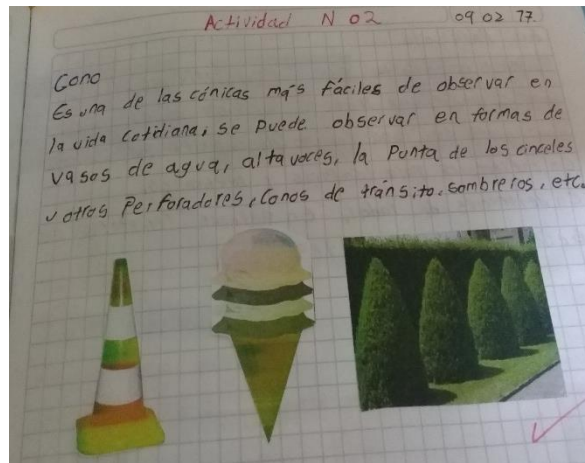 Actividad N 02 09 02 17
Cono
Es una de las cónicas más fáciles de observar en
la vida cotidiana, se puede observar en formas de
vasos de agua, altavoces, la Punta de los cinceles
y otros Perforadores, Conos de tránsito, sombreros, etc.